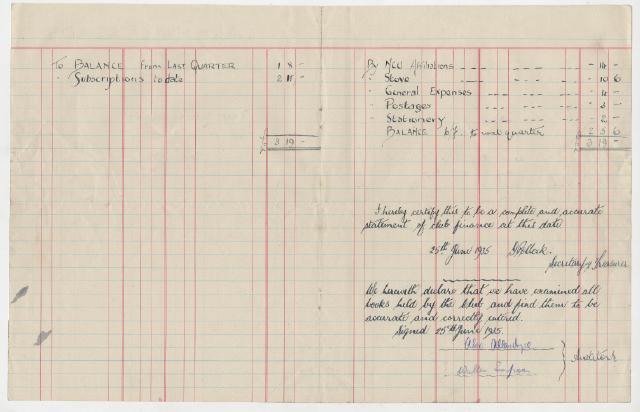 To BALANCE from LAST QUARTER 1 8 -
" Subscriptions to date 2 11 -
£ 3 19 -
By NCU Affiliations - 14 -
" Stove - 10 6
" General Expenses - 4 -
" Postages - 3 -
" Stationery - 2 -
BALANCE b/f. to next quarter 2 5 6
£ 3 19 -
I hereby certify this to be a complete and accurate
statement of club finance at this date
25th June 1935 Pollock.
Secretary & Treasurer
We herewith declare that we have examined all
books held by the Club and find them to be
accurate and correctly entered.
Signed 25th June 1935.
Walter
Auditors